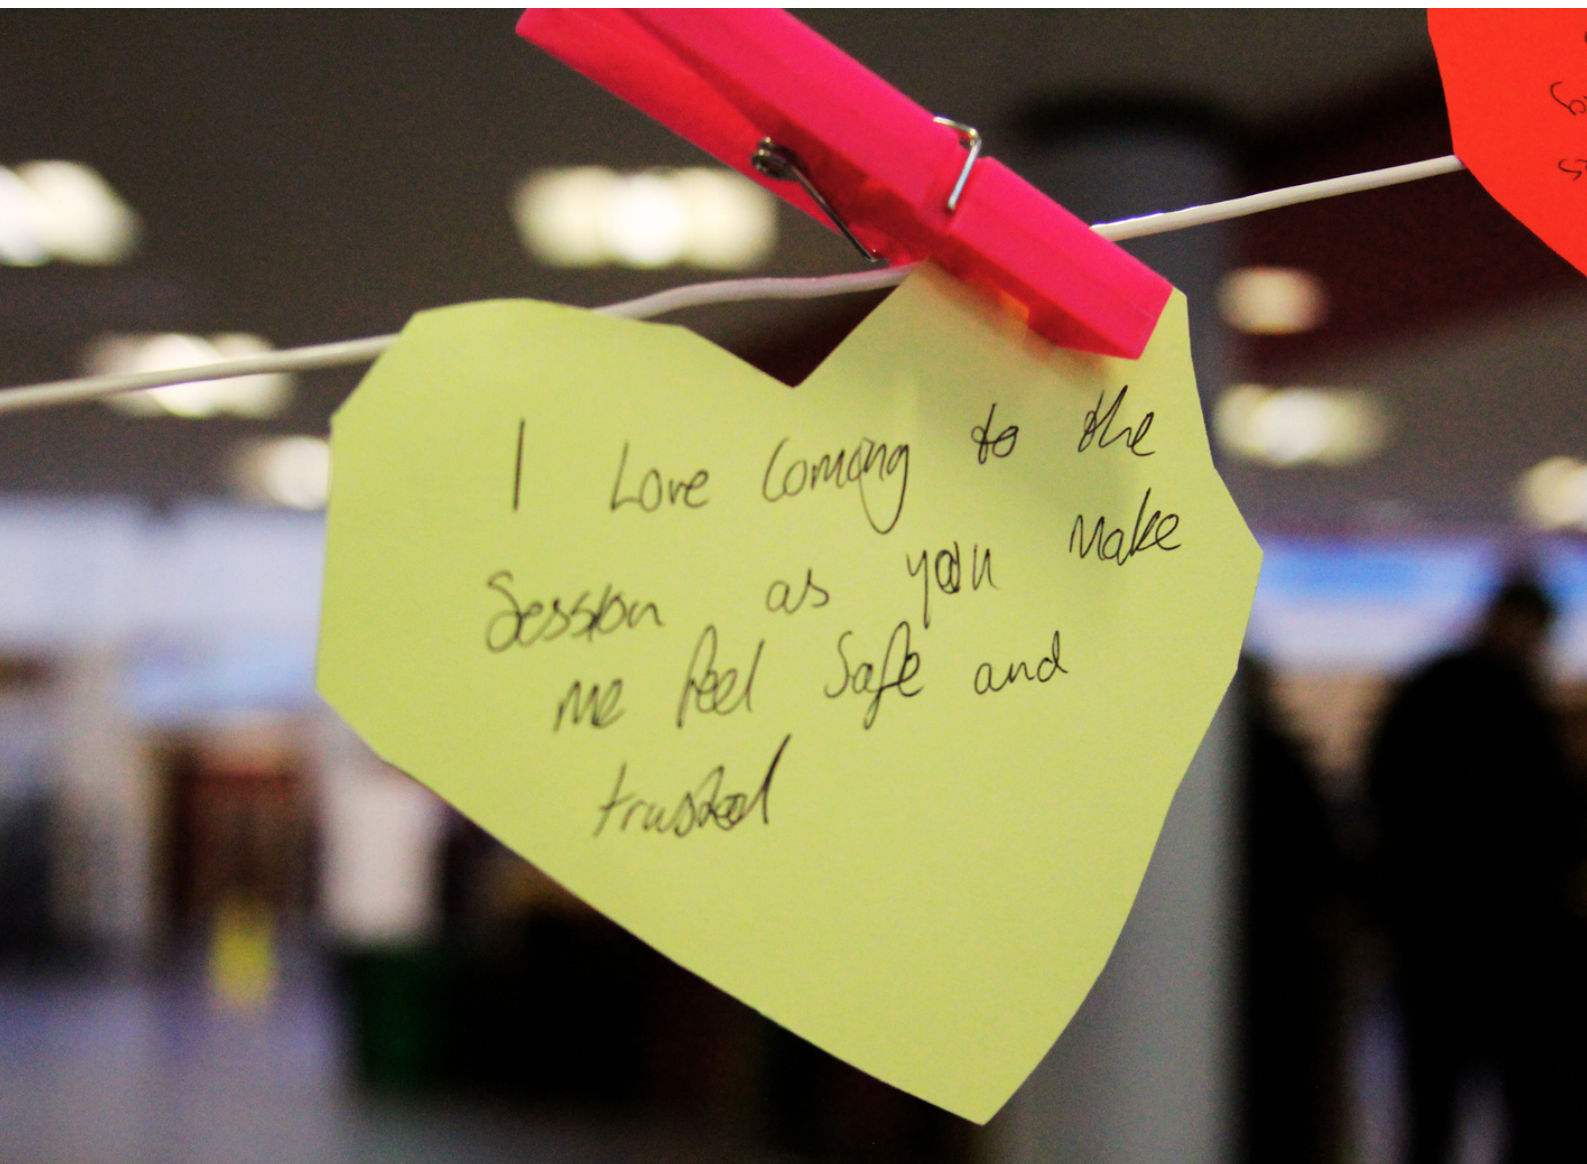 I Love Coming to the
Session as you make
me feel Safe and
trusted